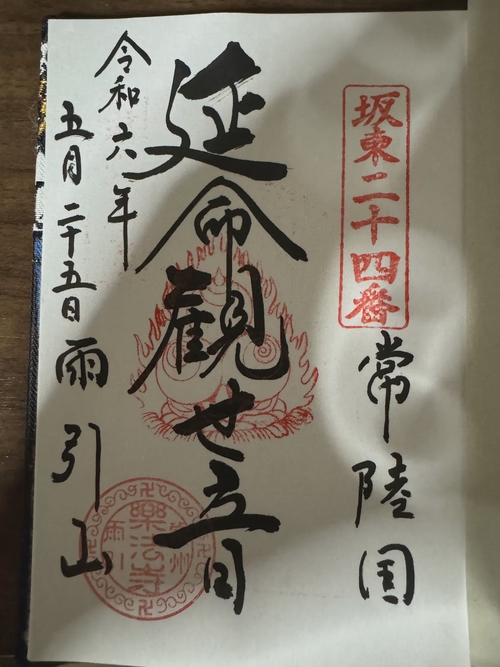 坂東二十四番
常陸国
延命観世音
令和六年
五月二十五日雨引山
樂法寺